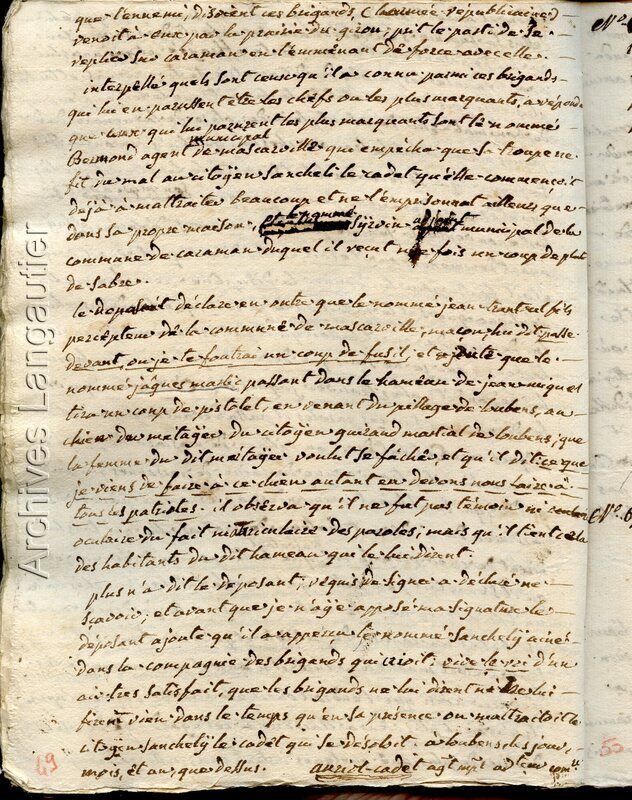 que l'ennemi, disoient ces brigands, (l'armée républicaine)
venoit à eux par la prairie du girou, prit le parti de se
replier sur caraman en l'emmenant de force avec elle.
interpellé quels sont ceux qu'il a connu parmi ces brigands
qui lui en parussent être les chefs ou les plus marquants, a répondu
que ceux qui lui parurent les plus marquants sont le nommé
municipal
Bermond agent de mascarville qui empécha que sa troupe ne
fit du mal au citoyen sancheli le cadet qu'elle commençoit
déjà à maltraiter beaucoup et ne l'emprisonnat ailleurs que
dans sa propre maison, le nommé municipal de la
commune de caraman duquel il reçut une fois un coup de plat
de sabre.
le déposant déclare en outre que le nommé jean fils
percepteur de la commune de mascarville, macon, lui dit passe
devant, ou je te foutrai un coup de fusil, et ajoute que le
nommé jaques passant dans le hameau de
tira un coup de pistolet, en venant du pillage de loubens, au
chien du métayer du citoyen guiraud martial de loubens; que
la femme du dit métayer voulut se fâcher et qu'il dit ce que
je viens de faire à ce chien autant en devons nous faire à
tous les patriotes. il observa qu'il ne fut pas témoin ni
oculaire du fait ni auriculaire des paroles; mais qu'il tient cela
des habitants du dit hameau qui le lui dirent.
plus n'a dit le déposant, requis de signer a déclaré ne
sçavoir; et avant que je n'aye apposé ma signature le
déposant ajoute qu'il a apperçu le nommé sanchely ainé
dans la compagnie des brigands qui crioit, vive le roi d'un
air tres satisfait, que les brigands ne lui dirent ni ne lui
firent rien dans le temps qu'en sa présence on maltraitoit le
citoyen sanchely le cadet qui se désoloit à loubens les jour,
mois, et an, que dessus. auriol cadet agt mpl
49
N°
N°
55
Archives Langautier